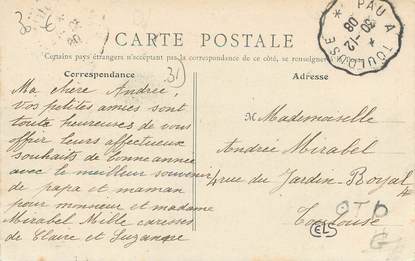 CARTE POSTALE
(Certains pays étrangers n'acceptant pas la correspondance de ce côté, se renseigner
Correspondance
Adresse
PAU A TOULOUSE
30-12
08
31
Ma chère Andrée,
vos petites amies sont
toute heureuses de vous
offrir leurs affectueux
souhaits de bonne année
avec le meilleur souvenir
de papa et maman
pour monsieur et madame
Mirabel Mille caresses
de Claire et Suzanne
M Mademoiselle
Andrée Mirabel
4 rue du Jardin-Royal 4
Toulouse
CELS